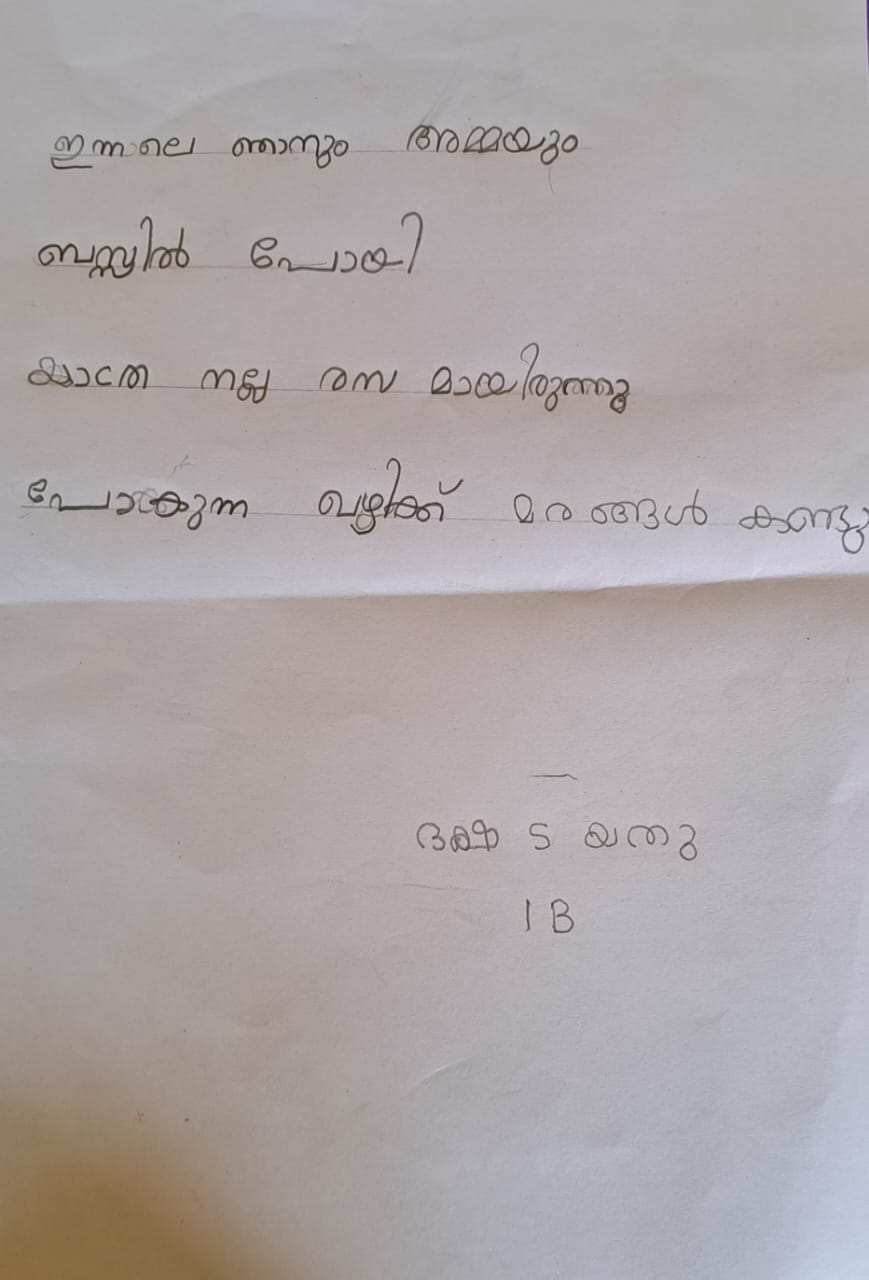 ഇന്നലെ ഞാനും അമ്മയും
ബസ്സിൽ പോയി
യാത്ര നല്ല രസ മായിരുന്നു
പോകുന്ന വഴിക്ക് മരങ്ങൾ കണ്ടു
യതു
1 B